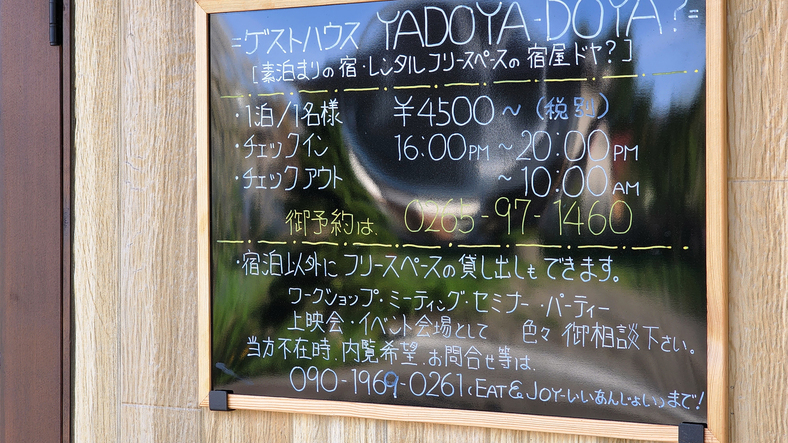 =ゲストハウス YADOYA-DOYA?=
[素泊まりの宿・レンタルフリースペースの宿屋ドヤ?]
・1泊/1名様 ¥4500~(税別)
・チェックイン 16:00PM~20:00PM
・チェックアウト ~10:00AM
御予約は、 0265-97-1460
・宿泊以外にフリースペースの貸し出しもできます。
ワークショップ・ミーティング・セミナー・パーティー
上映会・イベント会場として 色々御相談下さい。
当方不在時、内覧希望、お問合せ等は、
090-1969-0261(EAT&JOY-いいあんじょい)まで!